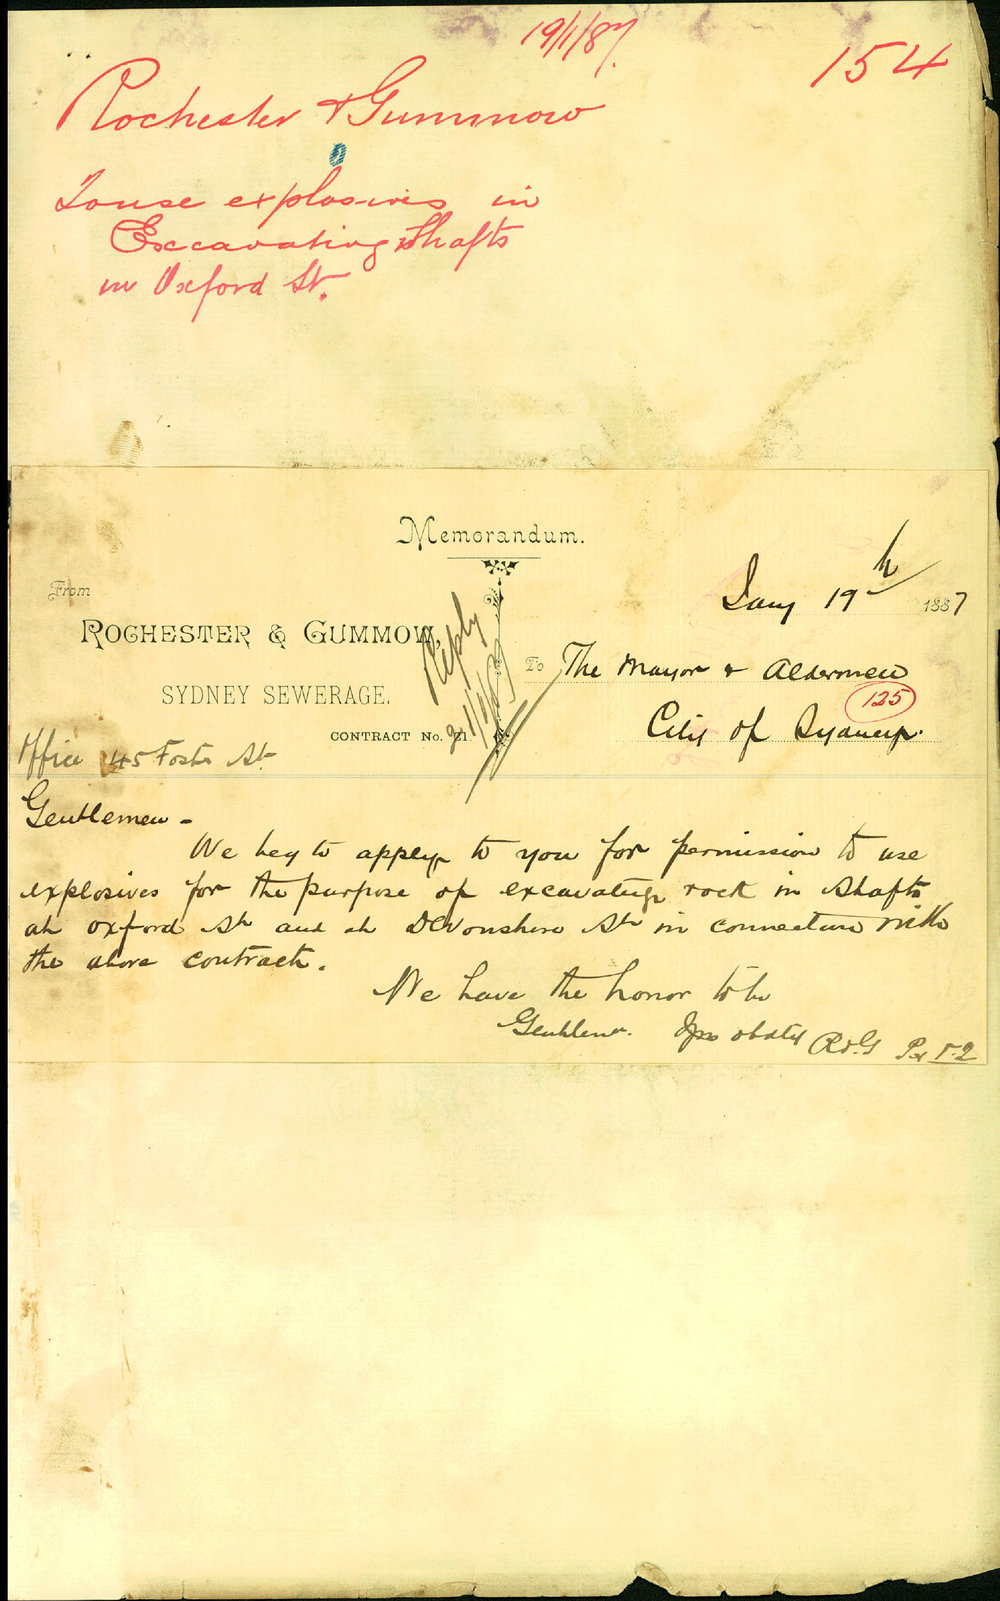 19/1/87.
154
Rochester & Gummow
To use explosives in
Excavating Shafts
in Oxford St.
Memorandum.
From
Jany 19th 1887
ROCHESTER & GUMMOW,
To The Mayor & Aldermen
SYDNEY SEWERAGE.
125
City of Sydney.
CONTRACT No. 21.
Reply
Office 45 Foster St
Gentlemen -
We beg to apply to you for permission to use
explosives for the purpose of excavating rock in shafts
at Oxford St and at Devonshire St in connection with
the above contract.
We have the honor to be
Gentlemen. R & G Per